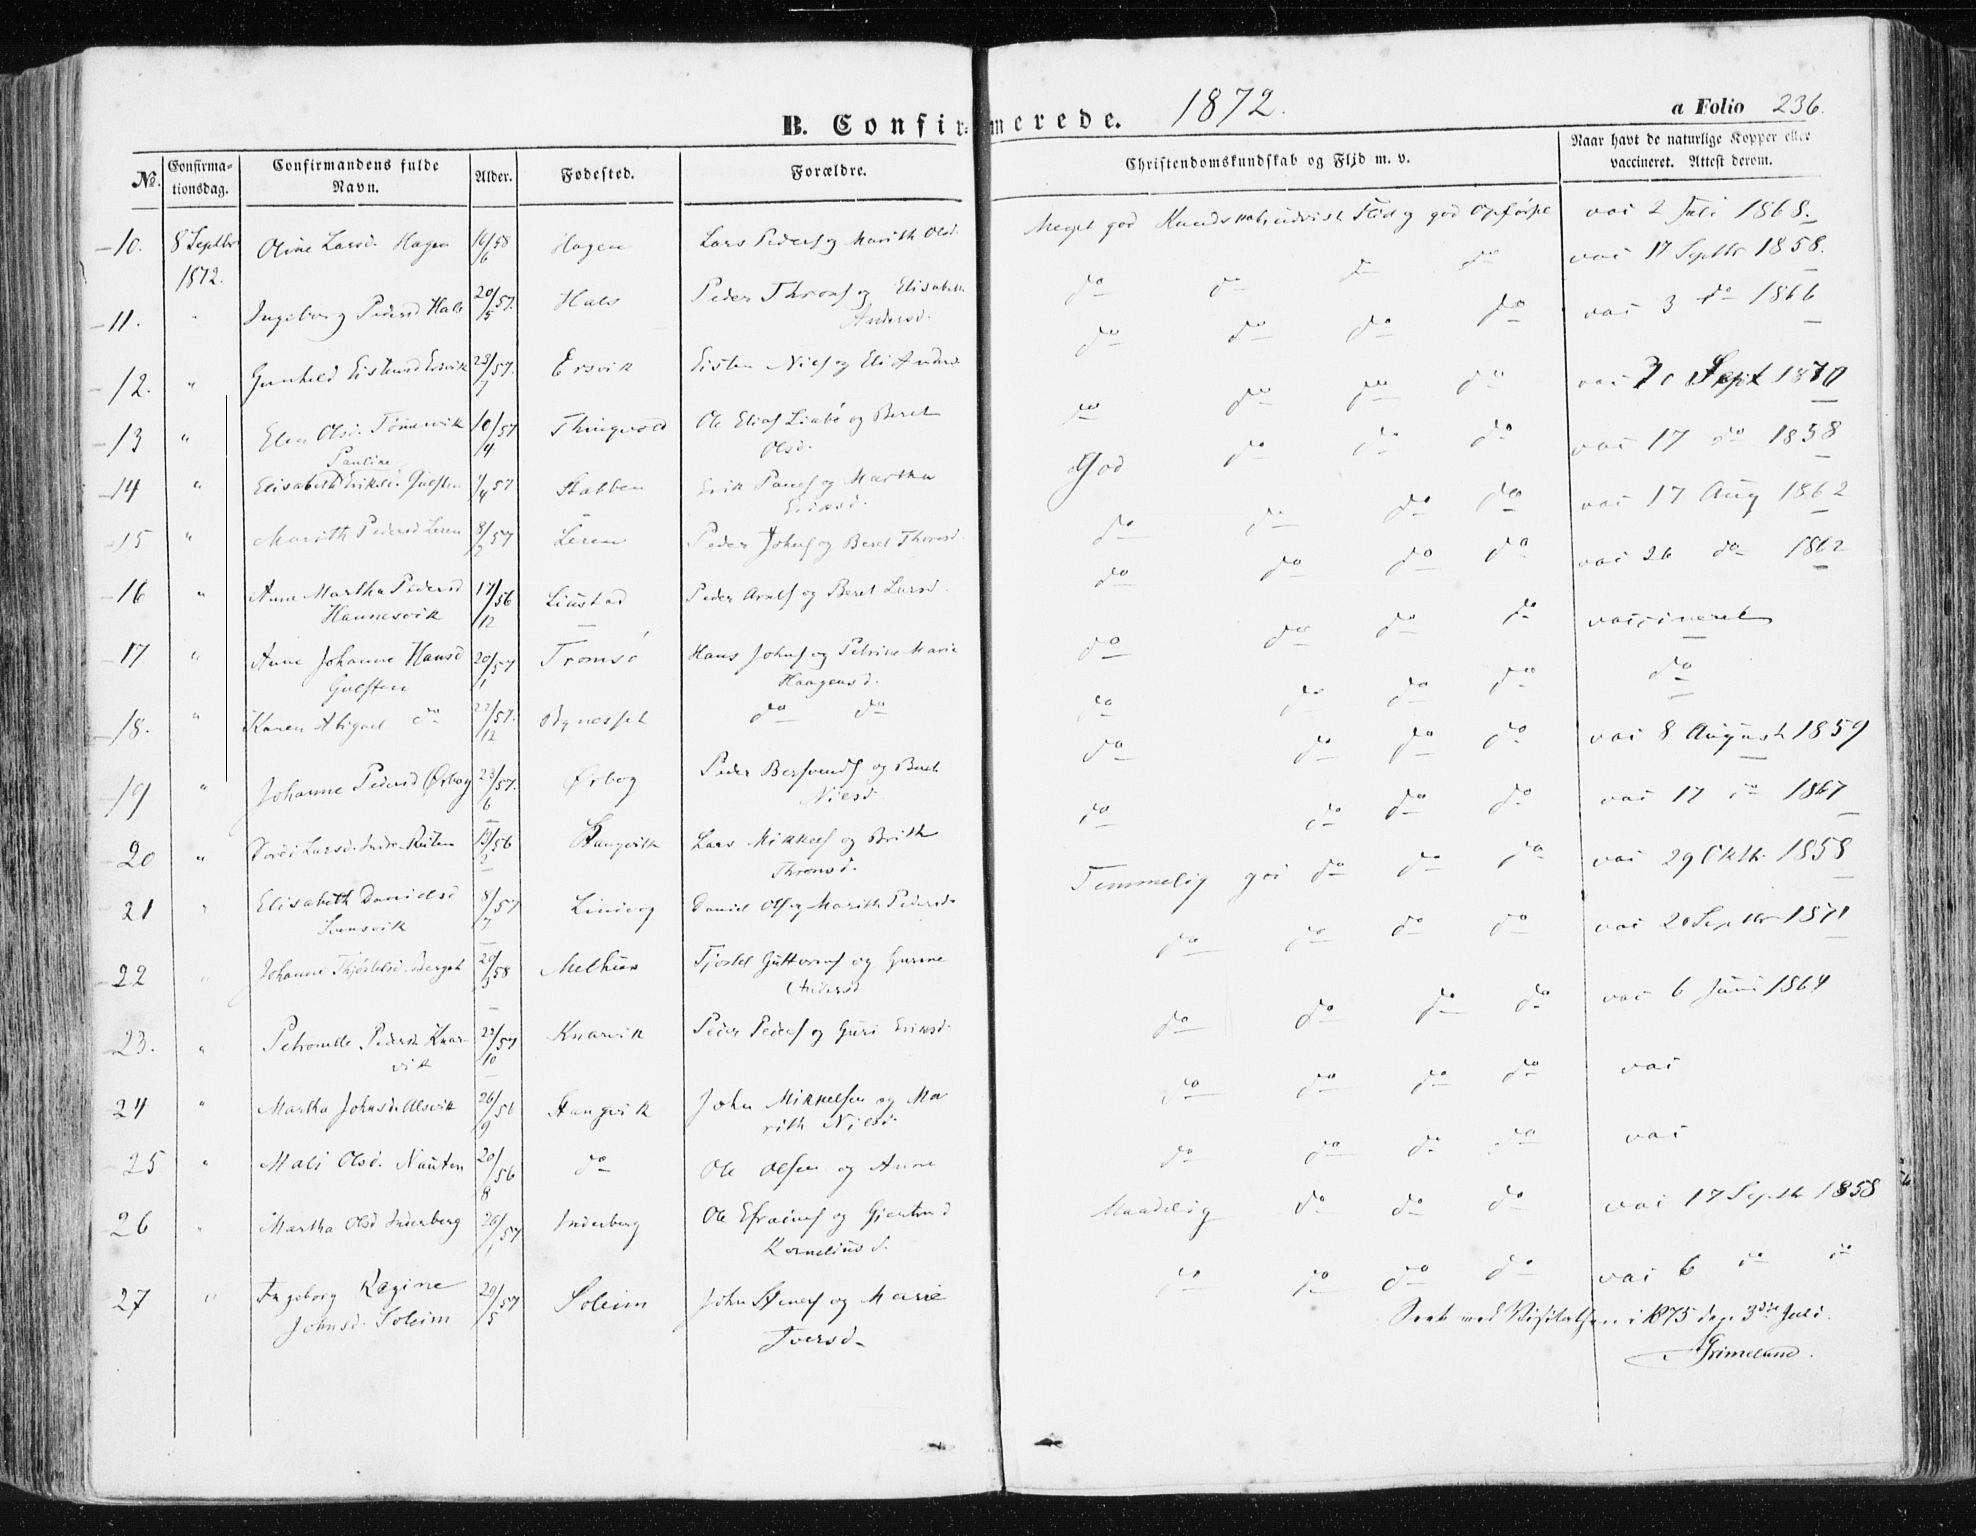 B. Confirmerede. 1872. a Folio 236.
No. Confirmationsdag. Confirmandens fulde Navn. Alder. Fødested. Forældre. Christendomskundskab og Flid m. v. Naar havt de naturlige Kopper eller vaccineret. Attest derom.
10. 8 Septbr 1872. Oline Larsd. Hagen 16/6 58 Hagen Lars Peders og Marith Olsd. Meget god Kundskab udvist Flid og god Opførsel vac 2 Juli 1868.
11. " Ingeborg Pedersd Hals 20/5 57. Hals Peder Throns og Elisabeth Andersd. do do do do vac 17 Septbr 1858.
12. " Gunhild Eistensd Ersvik 23/7 57. Ersvik Eisten Niels og Eli Anders do do do do vac 3 do 1866
13 " Elen Olsd. Tømmervik 10/4 57 Thingvold Ole Elias Liabø og Beret Olsd. do do do do vac Sept 1870
14 " Elisabeth Pauline Eriksd. Gulsten 1/4 57 Stabben Erik Pauls og Martha Eriksd. God do do do vac 17 do 1858
15 " Marith Pedersd Leren 8/2 57 Leren Peder Johns og Beret Thoresd. do do do do vac 17 Aug 1862
16 " Anne Martha Pedersd Hannesvik 17/12 56 Liustad Peder Arnts og Beret Larsd. do do do do vac 26 do 1862
17 " Anne Johanne Hansd Gulsten 20/1 57 Tromsø Hans Johns og Petrine Marie Haagensd. do do do do vaccineret
18. " Karen Abigael do 22/12 57. Bynesset do do do do do do do
19 " Johanne Pedersd Ørbog 23/6 57. Ørbog Peder Bersvends og Beret Nilsd. do do do do vac 8 August 1859
20 " Larsd. Indr. 13/2 56 Stangvik Lars Mikkels og Brith Thronsd. do do do do vac 17 do 1867
21 " Elisabeth Danielsd Svensvik 8/7 57 Daniel Ols og Marith Pedersd. Temmelig god do do do vac 29 Oktb. 1858
22 " Johanne Berget 20/3 58 Melhuus Tjostel Guttorms og Gurine Andersd do do do do vac 20 Septbr 1871
23. " Petronelle Pedersd. Knarvik 22/10 57 Knarvik Peder Peders og Guri Eriksd. do do do do vac 6 Juni 1864
24 " Martha Johnsd. Alsvik 26/9 56 Stangvik John Mikkelsen og Marith Nilsd. do do do do vac
25 " Mali Olsd. Nauten 20/8 56 do Ole Olsen og Anne do do do do vac
26 " Martha Olsd Inderberg 26/1 57 Inderberg Ole Efraims og Gjertrud Korneliusd. Maadelig do do do vac 17 Septb 1858
27 " Ingeborg Regine Johnsd. Soleim 29/5 57 Soleim John Steners og Marie Iversd. do do do do vac 6 do do
Seet ved Visitatsen i 1875 den 3die Juli.
Grimelund.